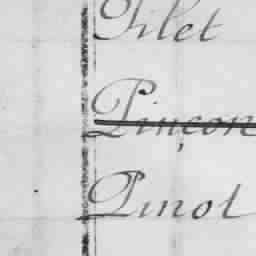 Pilet
Pinçon
Pinot